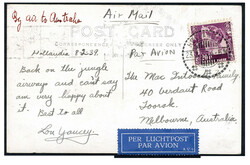 By air to Australia
Air Mail
POST CARD
Hollandia
PAR AVION
Back on the jungle
airways and can't say
am very happy about
it. Best to all
Don Yancey
The Mac Family
40 Verdant Road
Toorak
Melbourne, Australia
PER LUCHTPOST
PAR AVION